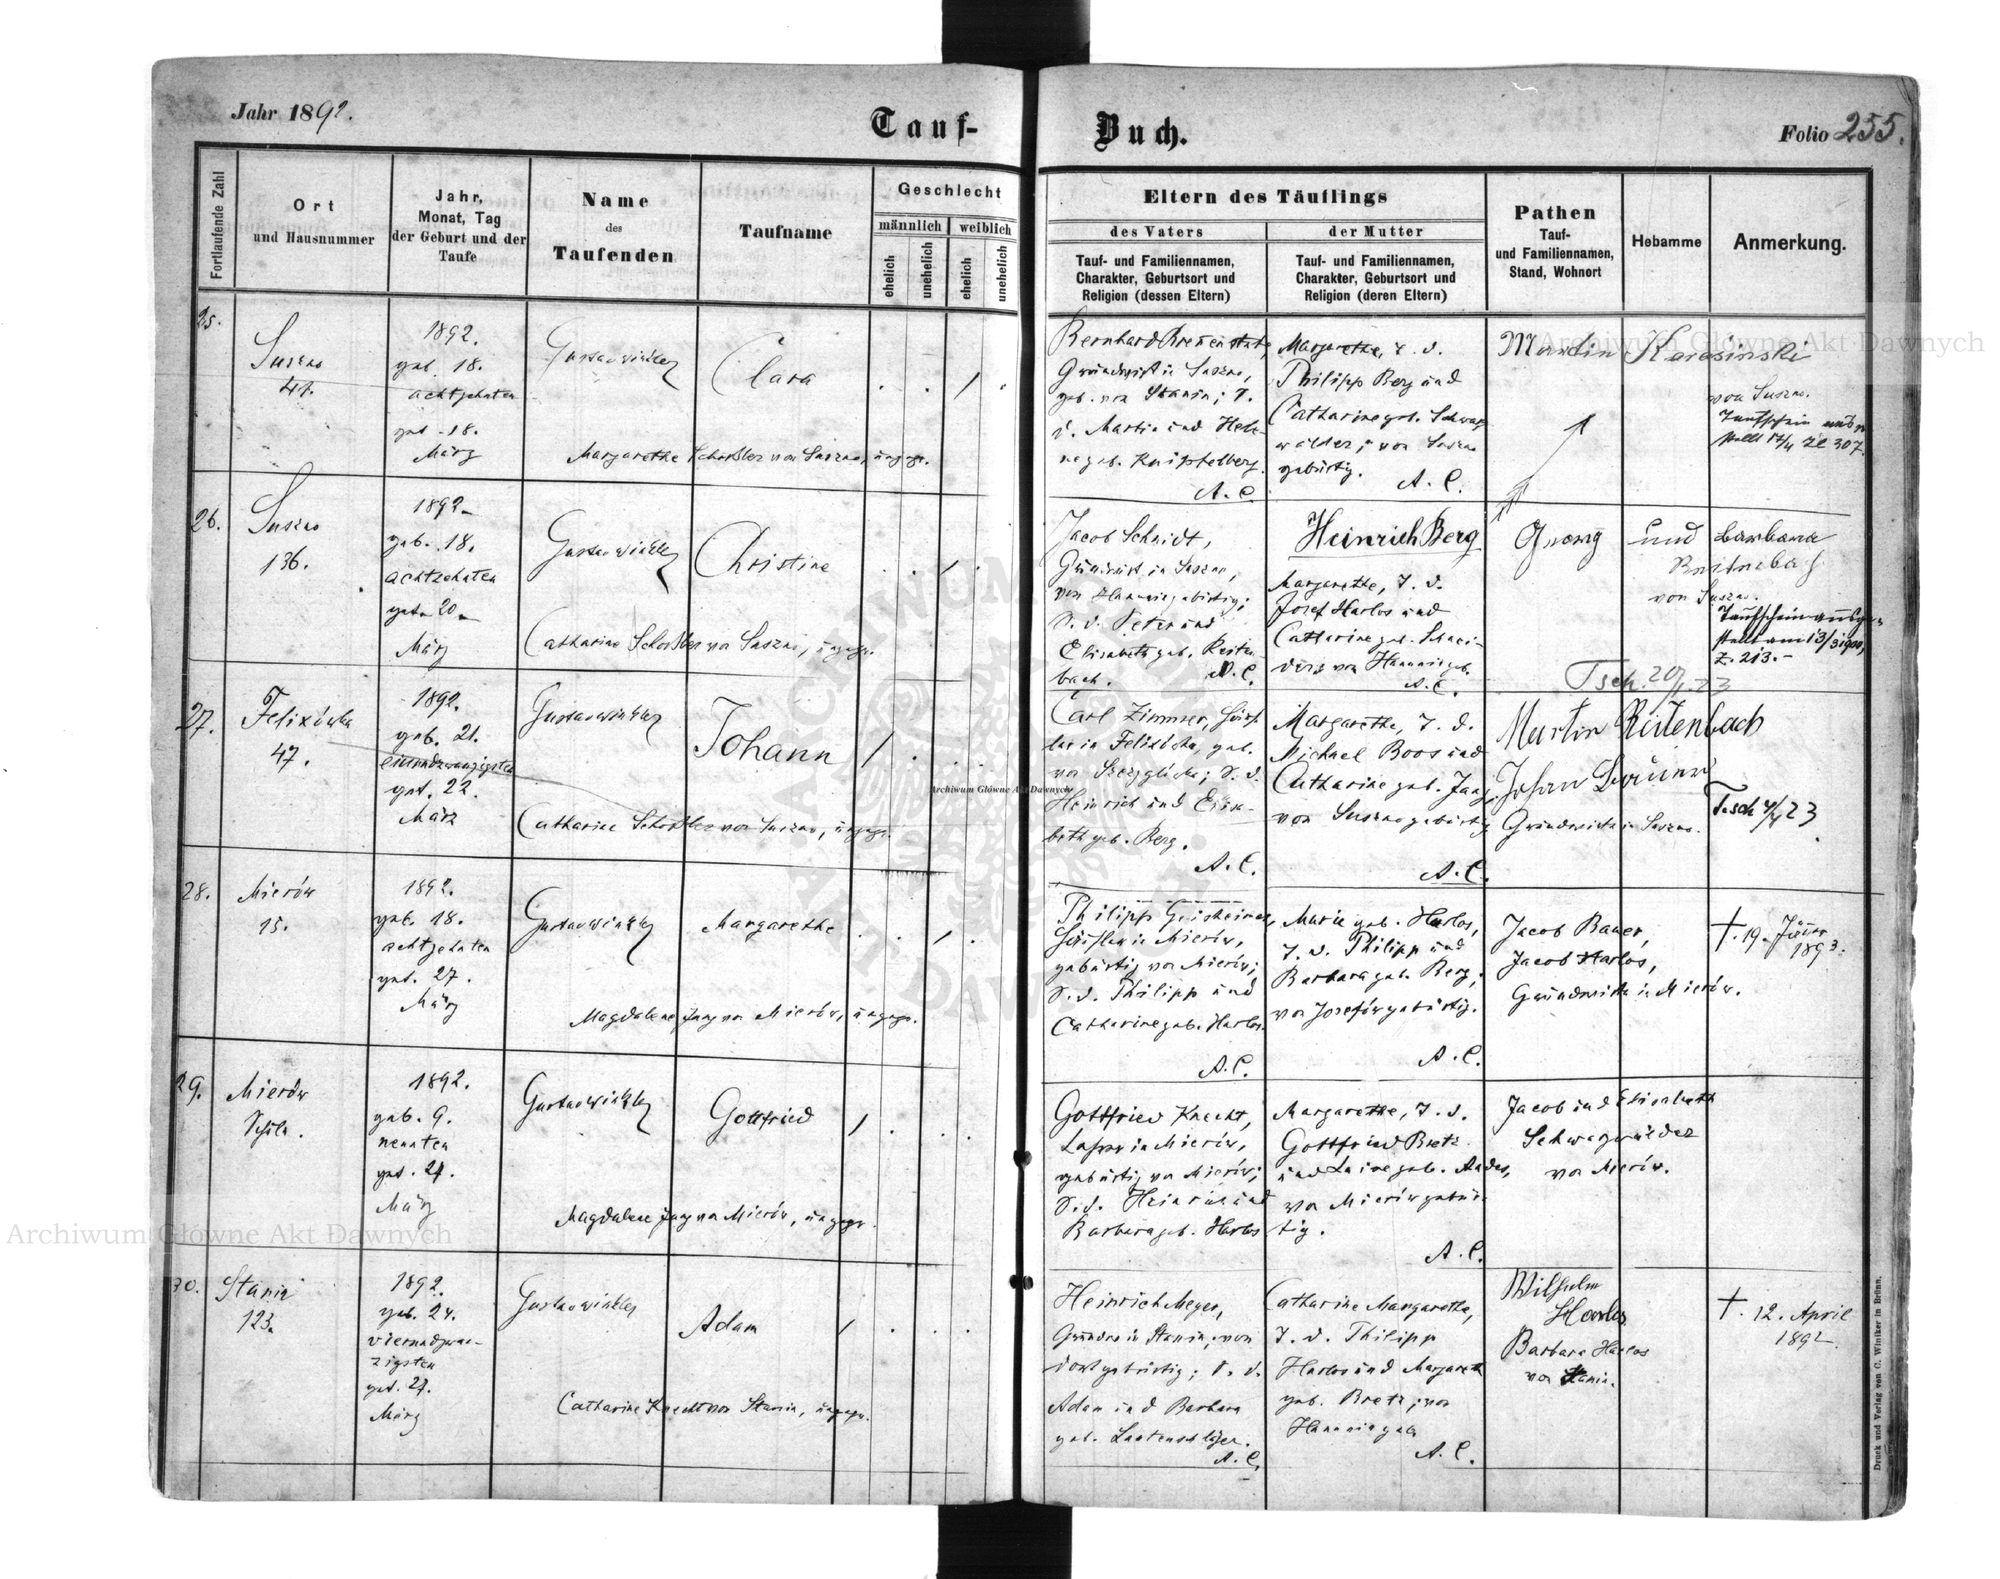 Jahr 1892.
Tauf-
Buch.
Folio 255.
Fortlaufende Zahl
Ort
und Hausnummer
Jahr,
Monat, Tag
der Geburt und der
Taufe
Name
des
Taufenden
Taufname
Geschlecht
männlich
weiblich
ehelich
unehelich
ehelich
unehelich
Eltern des Täuflings
des Vaters
Tauf- und Familiennamen,
Charakter, Geburtsort und
Religion (dessen Eltern)
der Mutter
Tauf- und Familiennamen,
Charakter, Geburtsort und
Religion (deren Eltern)
Pathen
Tauf-
und Familiennamen,
Stand, Wohnort
Hebamme
Anmerkung.
25.
Suszno
41.
1892.
geb. 18.
achtzehnten
get. 18.
März
Gustav Winkler
Clara
Margarethe von Suszno,
Bernhard
in Suszno,
geb. von Stanin; S.
d. Martin und Hele-
ne geb.
A. C.
Margarethe, T. d.
Philipp Berg und
Catharine geb. Schwarz-
wälder; von Suszno
gebürtig.
A. C.
Martin
von Suszno.
Taufschein
307.
26.
Suszno
136.
1892
geb. 18.
achtzehnten
get. 20
März
Gustav Winkler
Christine
Catharine von Suszno,
Jacob Schmidt,
in Suszno,
von Hanunin gebürtig;
S. d. Peter und
Elisabeth geb. Reiten-
bach.
A. C.
Heinrich Berg
Margarethe, T. d.
Josef Harlos und
Catharine geb. Schnei-
der; von Hanunin geb.
A. C.
Georg und Barbara
Reitenbach
von Suszno.
Taufschein ausge-
stellt am 13/3 1900,
Z. 213.-
27.
Felixówka
47.
1892.
geb. 21.
einundzwanzigsten
get. 22.
März
Gustav Winkler
Johann
Catharine von Suszno,
Carl Zimmer, Häus-
ler in Felixówka, geb.
von S. d.
Heinrich und Elisa-
beth geb. Berg.
A. C.
Margarethe, T. d.
Michael Boos und
Catharine geb. Jung
von Suszno gebürtig
A. C.
Martin Reitenbach
Johann
Grundwirte in Suszno.
28.
Mierów
15.
1892.
geb. 18.
achtzehnten
get. 27.
März
Gustav Winkler
Margarethe
Magdalene Jung von Mierów,
Philipp
Häusler in Mierów,
gebürtig von Mierów;
S. d. Philipp und
Catharine geb. Harlos.
A. C.
Marie geb. Harlos,
T. d. Philipp und
Barbara geb. Berg;
von Josefów gebürtig.
A. C.
Jacob Bauer,
Jacob Harlos,
Grundwirte in Mierów.
†. 19. Jänner
1893.
29.
Mierów
Schule.
1892.
geb. 9.
neunten
get. 27.
März
Gustav Winkler
Gottfried
Magdalene Jung von Mierów,
Gottfried Knecht,
Lehrer in Mierów,
gebürtig von Mierów;
S. d. Heinrich und
Barbara geb. Harlos
Margarethe, T. d.
Gottfried Bretz
und
von Mierów gebür-
tig.
A. C.
Jacob und Elisabeth
Schwarzwälder
von Mierów.
30.
Stanin
123.
1892.
geb. 24.
vierundzwan-
zigsten
get. 27.
März
Gustav Winkler
Adam
Catharine Knecht von Stanin,
Heinrich Meyer,
in Stanin, von
dort gebürtig; S. d.
Adam und Barbara
geb. Lautenschläger.
A. C.
Catharine Margarethe,
T. d. Philipp
Harlos und Margareth
geb. Bretz; von
Hanunin geb.
A. C.
Wilhelm
Harlos
Barbara Harlos
von Stanin.
†. 12. April
1892
Druck und Verlag von C. Winiker in Brünn.
Archiwum Główne Akt Dawnych
Archiwum Główne Akt Dawnych
Archiwum Główne Akt Dawnych